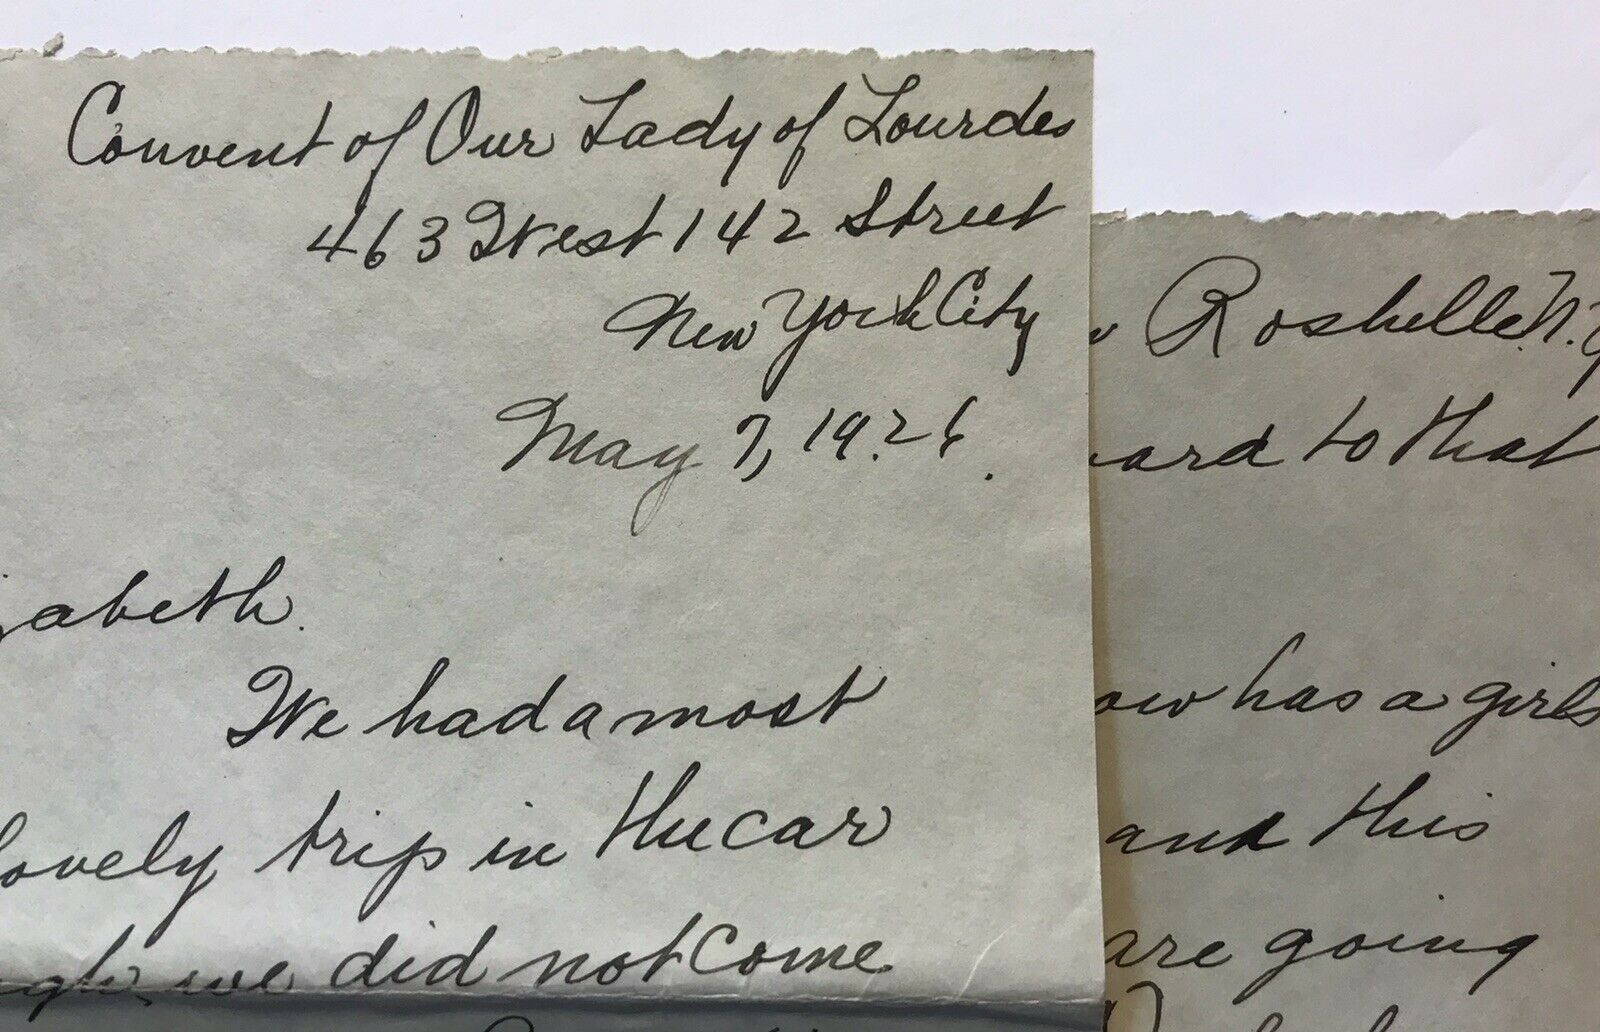 Convent of Our Lady of Lourdes
463 West 142 Street
New York City
May 7, 1926.
zabeth.
We had a most
lovely trip in the car
we did not come
w Roshelle. N.Y
ward to that
ow has a girls
and this
are going